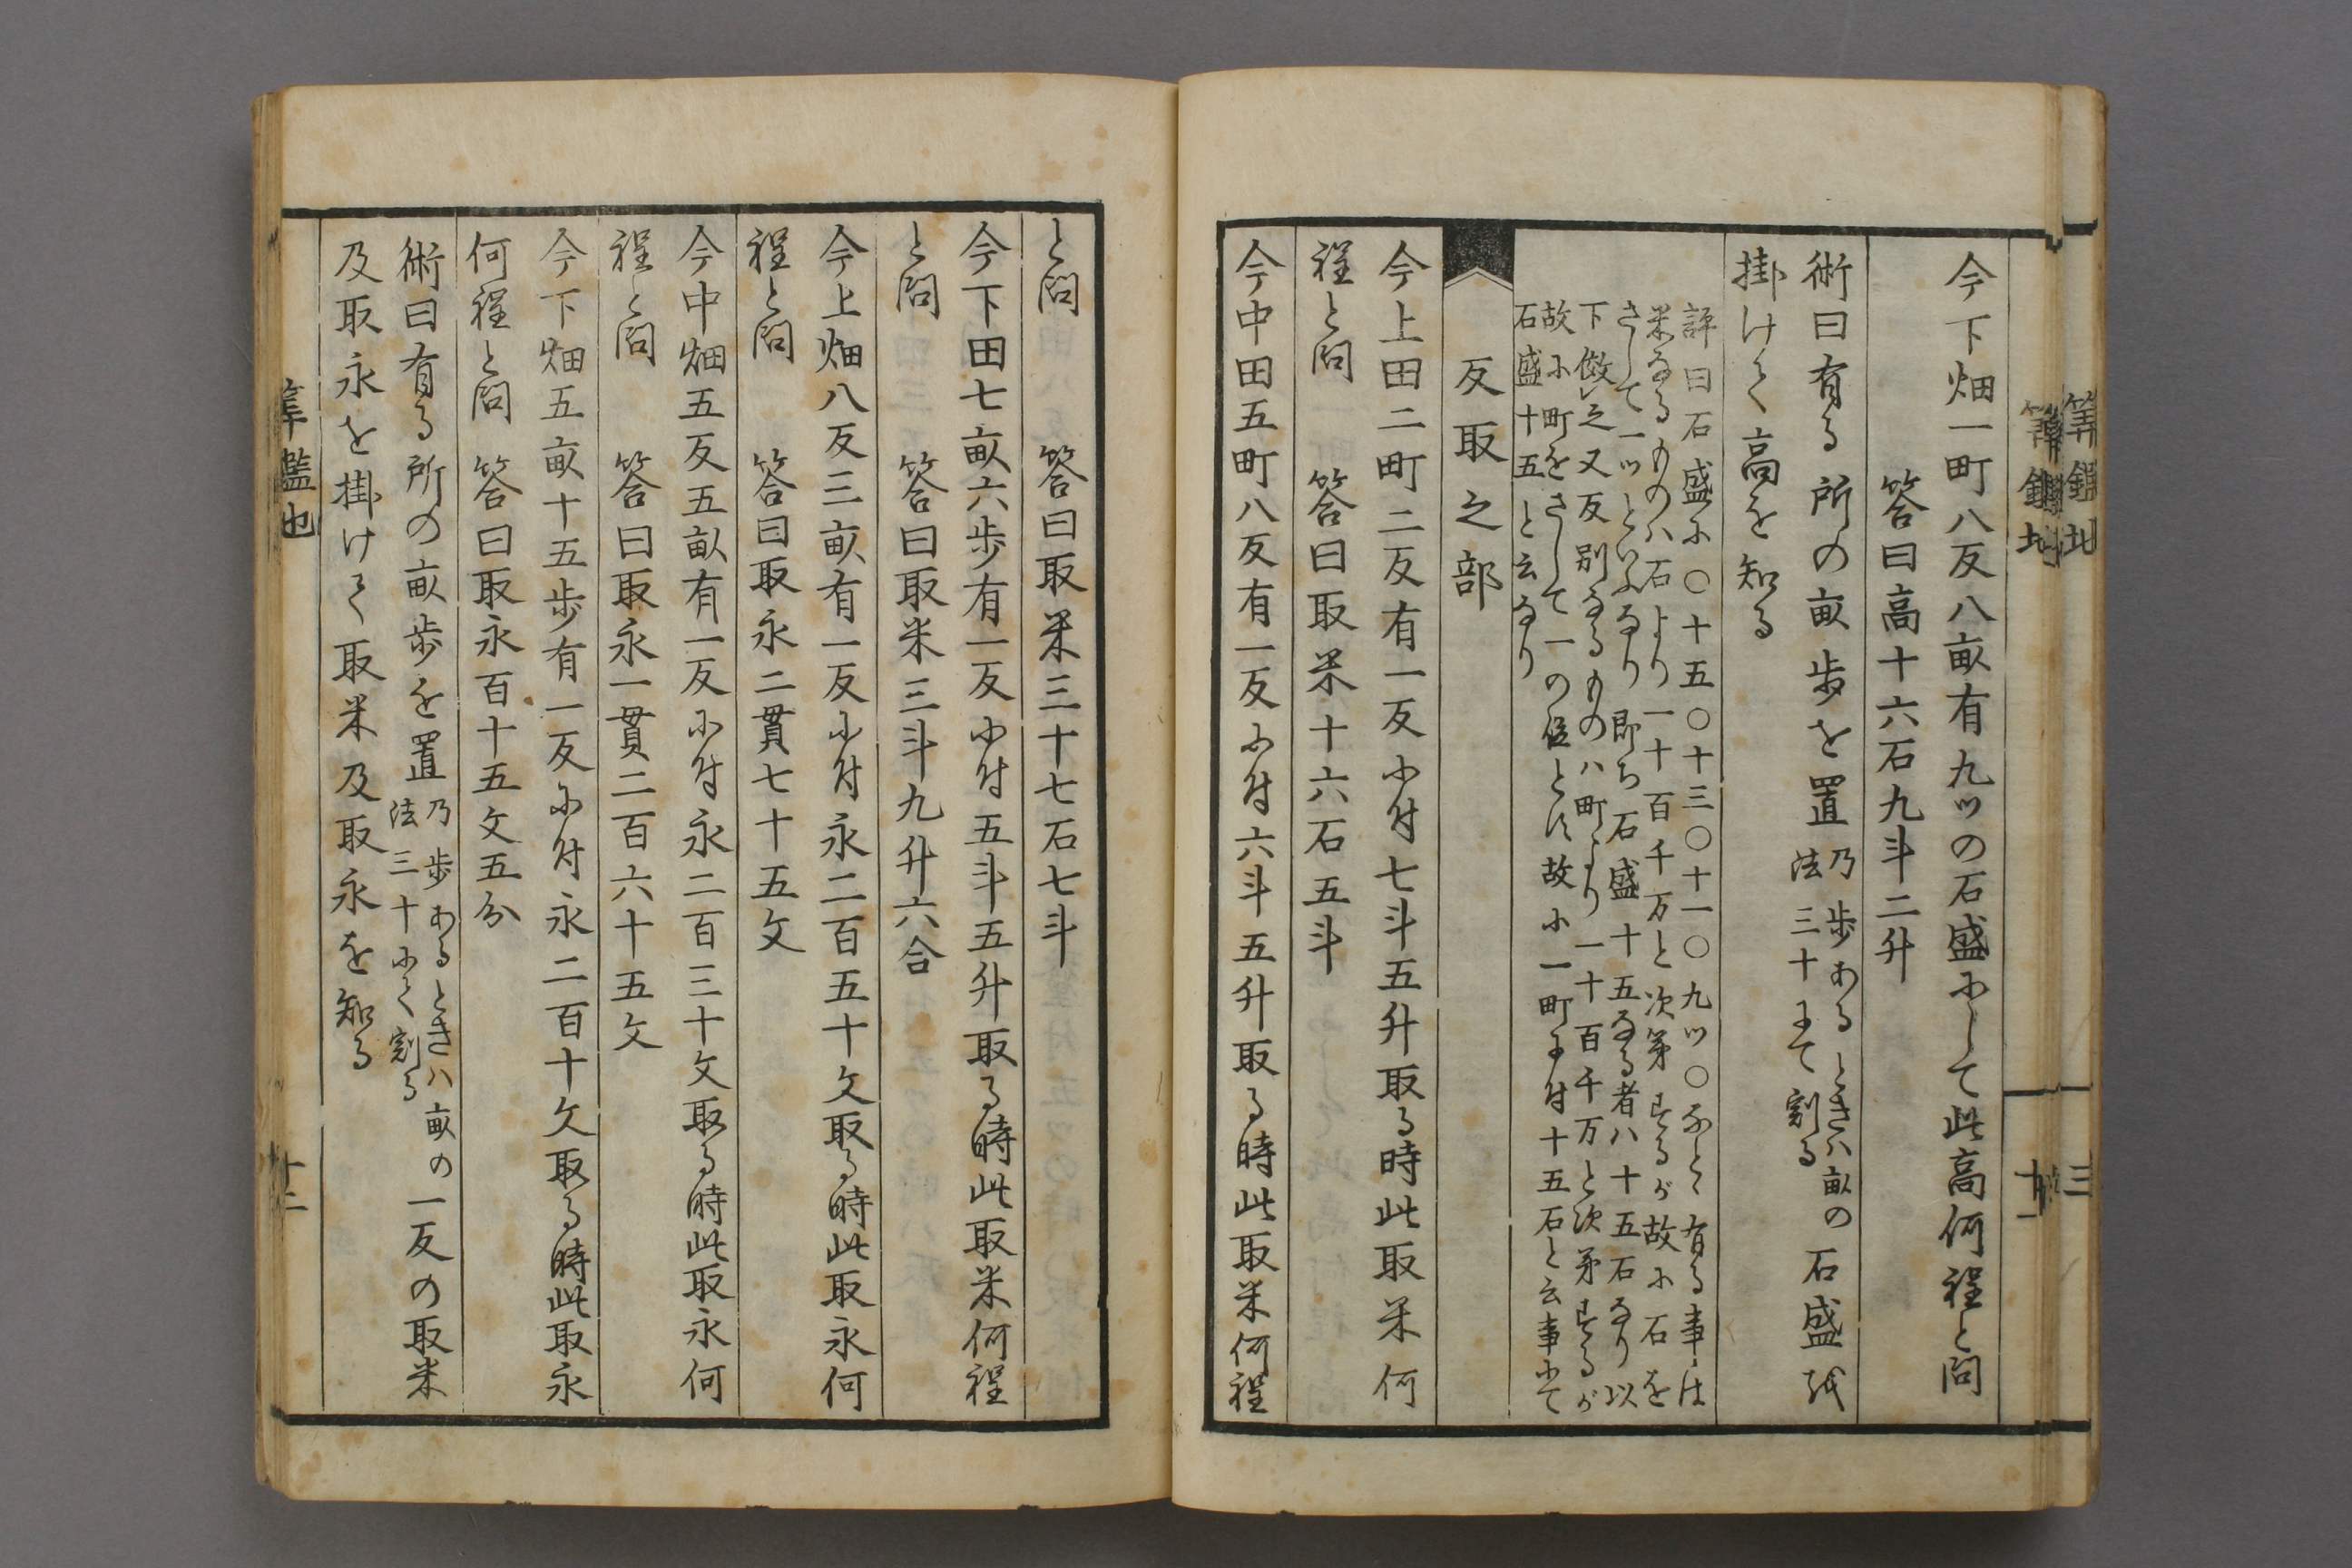 今下畑一町八反八畝有九ツの石盛にして此高何程と問
答曰高十六石九斗二升
術曰有る所の畝歩を置乃歩あるときハ畝の石盛を
法三十にて割る
掛けて高を知る
評曰石盛に〇十五〇十三〇十一〇九ツ〇などゝ有る事は
米なるものハ石より一十百千万と次第するが故に石を
さして一ツといふなり即ち石盛十五なる者ハ十五石なり以
下倣之又反別なるものハ町より一十百千万と次第するが
故に町をさして一の位とす故に一町に付十五石と云事にて
石盛十五と云なり
反取之部
今上田二町二反有一反に付七斗五升取る時此取米何
程と問 答曰取米十六石五斗
今中田五町八反有一反に付六斗五升取る時此取米何程
と問 答曰取米三十七石七斗
今下田七畝六歩有一反に付五斗五升取る時此取米何程
と問 答曰取米三斗九升六合
今上畑八反三畝有一反に付永二百五十文取る時此取永何
程と問 答曰取永二貫七十五文
今中畑五反五畝有一反に付永二百三十文取る時此取永何
程と問 答曰取永一貫二百六十五文
今下畑五畝十五歩有一反に付永二百十文取る時此取永
何程と問 答曰取永百十五文五分
術曰有る所の畝歩を置乃歩あるときハ畝の一反の取米
法三十にて割る
及取永を掛けて取米及取永を知る
十二